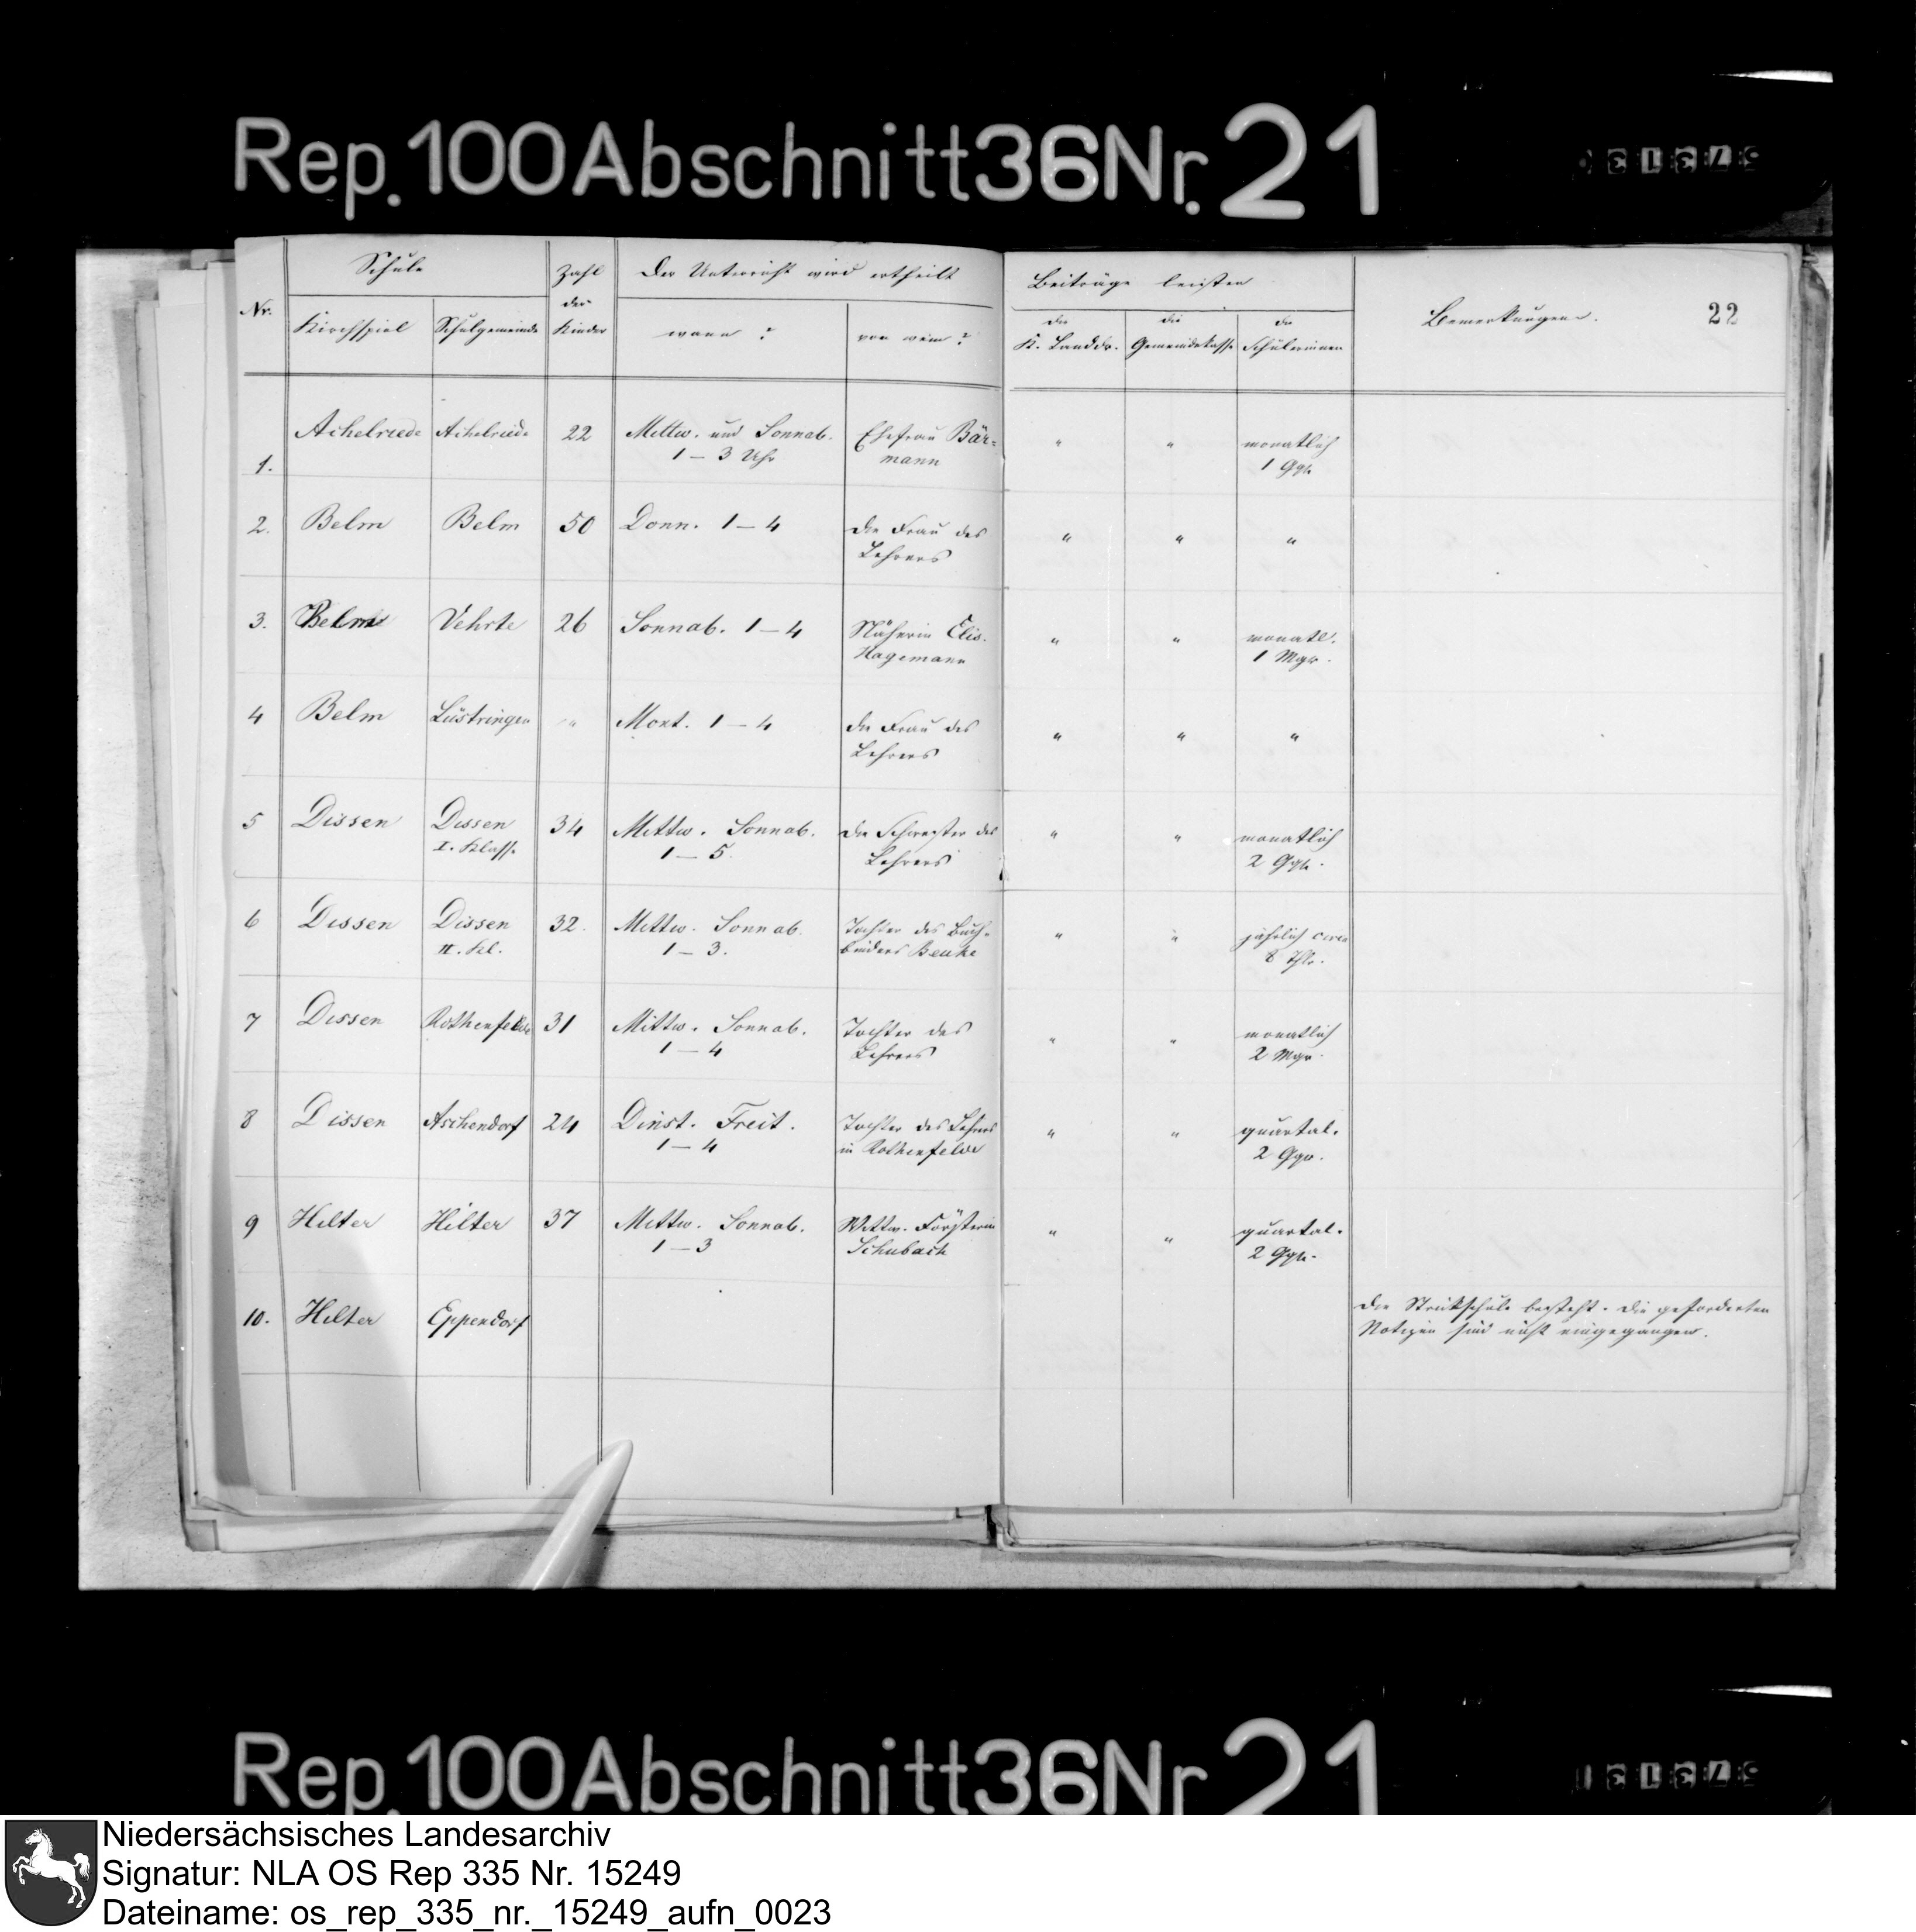 Rep. 100 Abschnitt 36 Nr. 21
22
Nr. Schule Zahl der Kinder Der Unterricht wird ertheilt Beiträge leisten Bemerkungen.
Kirchspiel Schulgemeinde wann? von wem? die K. Landdr. die Gemeindekasse die Schülerinnen
1. Achelriede Achelriede 22 Mittw. und Sonnab. Ehefrau Bär- " " monatlich
1 – 3 Uhr mann 1 Ggr.
2. Belm Belm 50 Donn. 1 – 4 die Frau des " " "
Lehrers
3. Belm Vehrte 26 Sonnab. 1 – 4 Näherin Elis. " " monatl.
Hagemann 1 Mgr.
4 Belm Lüstringen " Mont. 1 – 4 die Frau des " " "
Lehrers
5 Dissen Dissen 34 Mittw. Sonnab. die Schwester des " " monatlich
I. Klasse 1 – 5. Lehrers 2 Ggr.
6 Dissen Dissen 32. Mittw. Sonnab. Tochter des Buch- " " jährlich circa
II. Kl. 1 – 3. binders Beuke 8 Thlr.
7 Dissen Rothenfelde 31 Mittw. Sonnab. Tochter des " " monatlich
1 – 4 Lehrers 2 Mgr.
8 Dissen Aschendorf 24 Dinst. Freit. Tochter des Lehrers " " quartal.
1 – 4 in Rothenfelde 2 Ggr.
9 Hilter Hilter 37 Mittw. Sonnab. Wittw. Försterin " " quartal.
1 – 3 Schubach 2 Ggr.
10. Hilter Eppendorf Die Strickschule besteht. Die geforderten
Notizen sind nicht eingegangen.
Rep. 100 Abschnitt 36 Nr 21
Niedersächsisches Landesarchiv
Signatur: NLA OS Rep 335 Nr. 15249
Dateiname: os_rep_335_nr._15249_aufn_0023